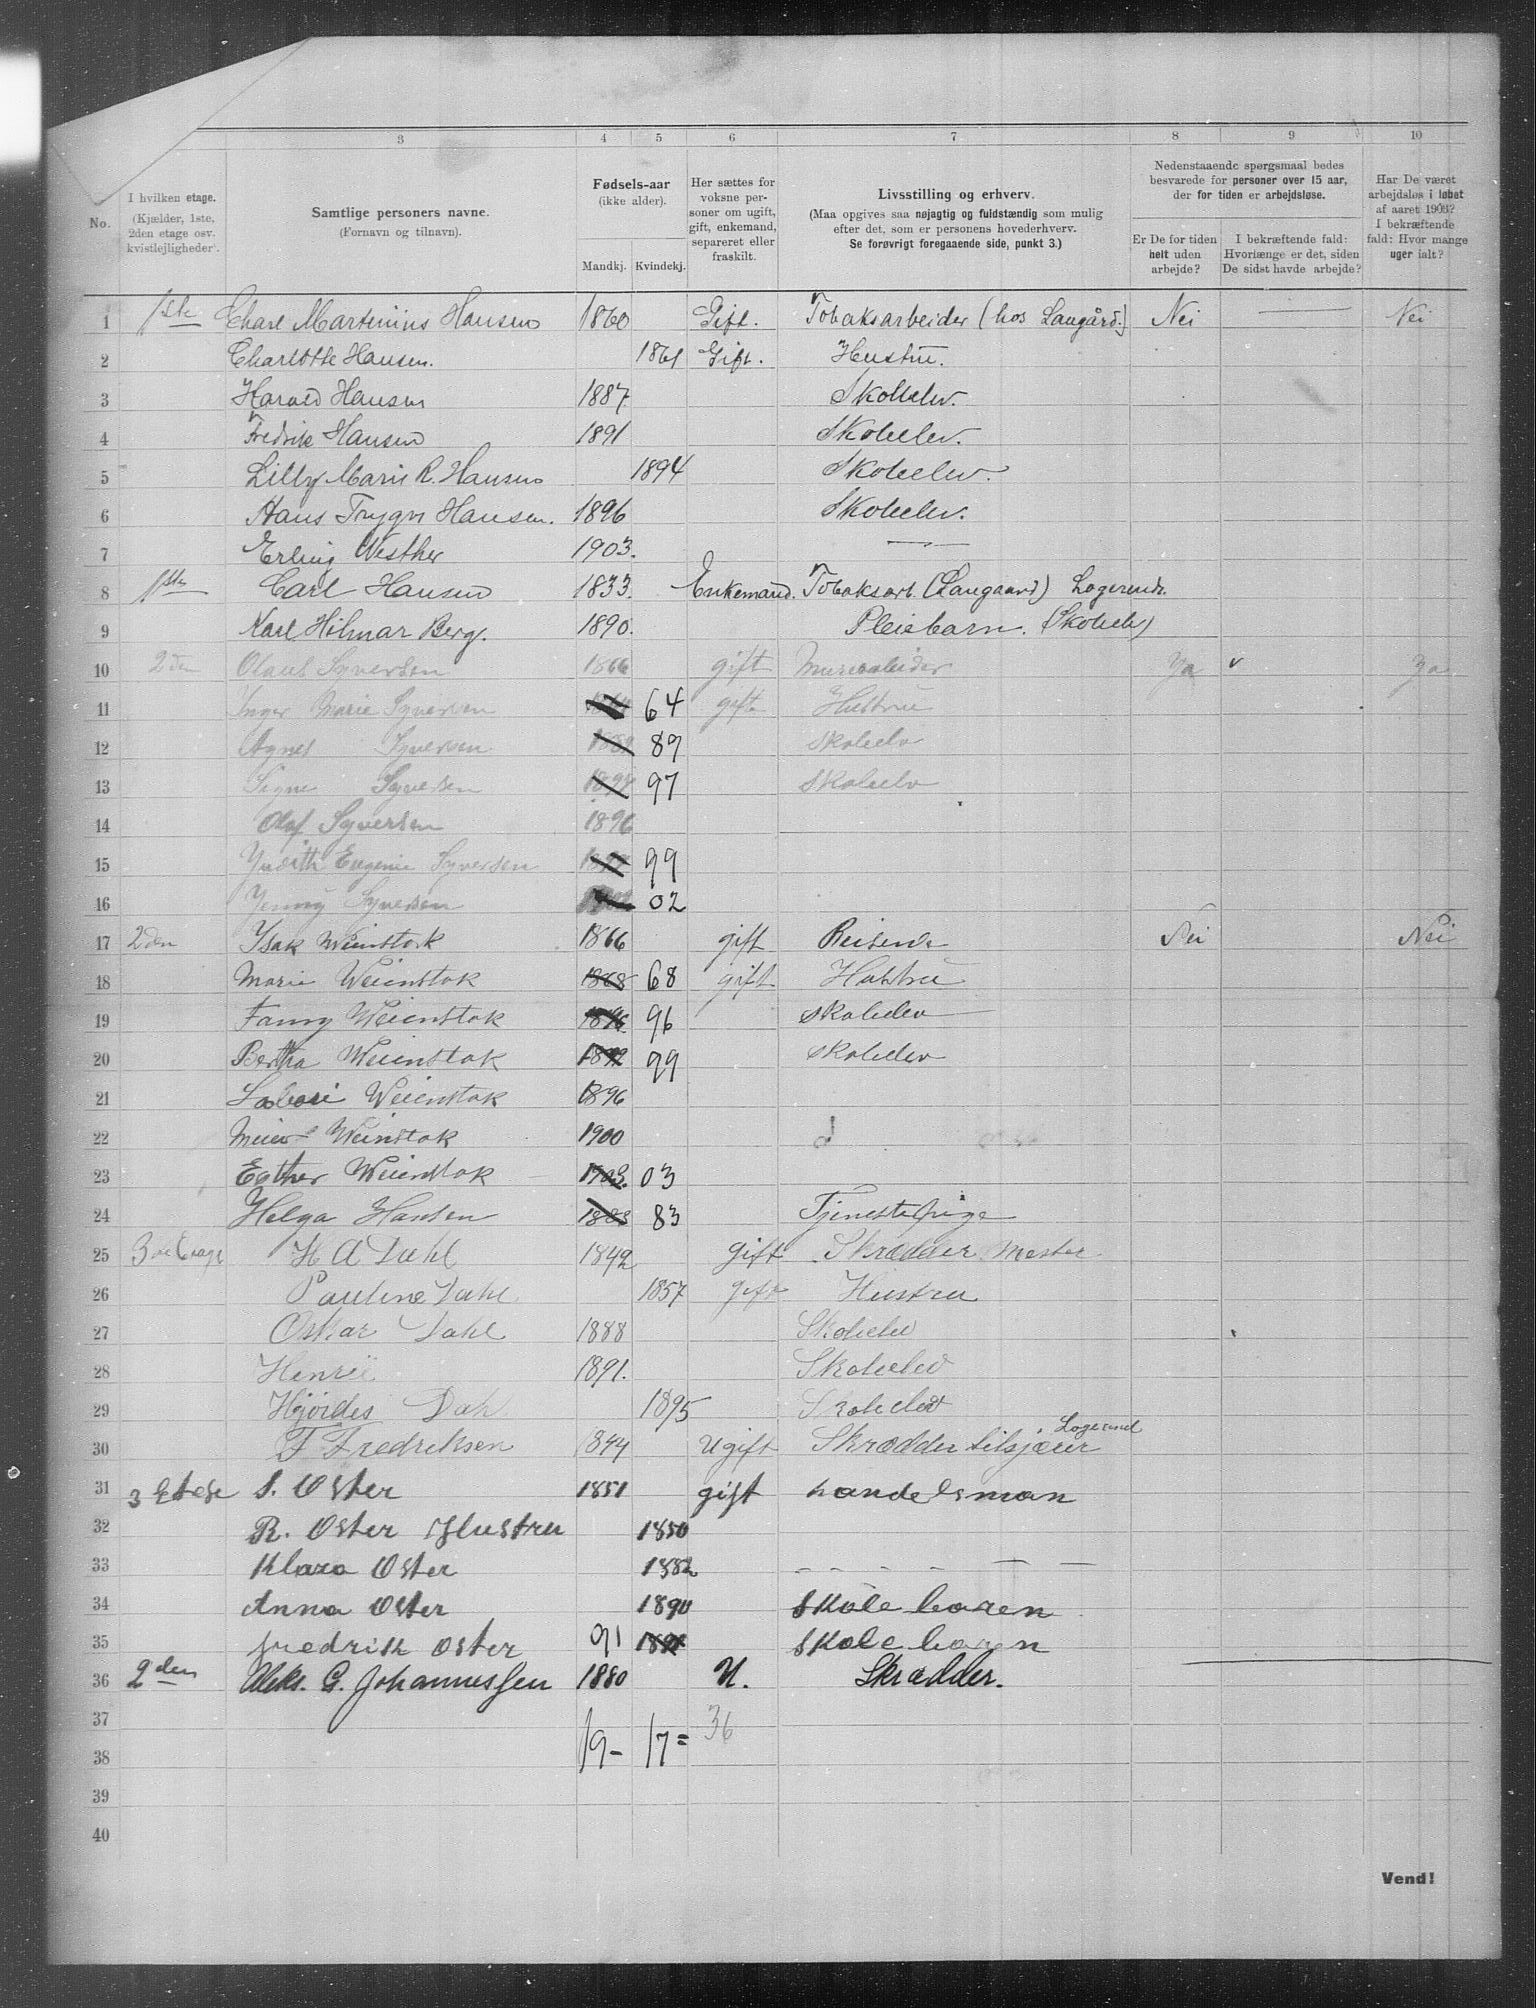 3 4 5 6 7 8 9 10
No.
I hvilken etage.
(Kjælder, 1ste,
2den etage osv.
kvistlejligheder).
Samtlige personers navne.
(Fornavn og tilnavn).
Fødsels-aar
(ikke alder).
Mandkj. Kvindekj.
Her sættes for
voksne per-
soner om ugift,
gift, enkemand,
separeret eller
fraskilt.
Livsstilling og erhverv.
(Maa opgives saa nøjagtig og fuldstændig som mulig
efter det, som er personens hovederhverv.
Se forøvrigt foregaaende side, punkt 3.)
Nedenstaaende spørgsmaal bedes
besvarede for personer over 15 aar,
der for tiden er arbejdsløse.
Er De for tiden
helt uden
arbejde?
I bekræftende fald:
Hvorlænge er det, siden
De sidst havde arbejde?
Har De været
arbejdsløs i løbet
af aaret 1903?
I bekræftende
fald: Hvor mange
uger ialt?
1 1ste Charl Martinius Hansen 1860 Gift. Tobaksarbeider (hos Langård.) Nei — Nei
2 Charlotte Hansen. 1861 Gift. Hustru.
3 Harald Hansen 1887 Skoleelev.
4 Fredrik Hansen 1891 Skoleelev.
5 Lilly Marie R. Hansen 1894 Skoleelev.
6 Hans Trygve Hansen. 1896 Skoleelev.
7 Erling Westher 1903. —
8 1ste Carl Hansen 1833. Enkemand. Tobaksarb. (Langaard) Logerende.
9 Karl Hilmar Berg. 1890. Pleiebarn. (Skoleelev)
10 2den Olaus Syversen 1866 gift Murerarbeider Ja v Ja
11 Inger Marie Syversen 64 gift Hustru
12 Agnes Syversen 89 Skoleelev
13 Signe Syversen 97 Skoleelev
14 Olaf Syversen 1896
15 Judith Eugenie Syversen 99
16 Jenny Syversen 02
17 2den Isak Weinstock 1866 gift Reisende Nei Nei
18 Marie Weienstok 1868 68 gift Hustru
19 Fanny Weienstok 1896 96 Skoleelev
20 Bertha Weienstok 99 Skoleelev
21 Weienstok 1896
22 Meier Weinstok 1900
23 Esther Weienstok 1903. 03
24 Helga Hansen 1883 83 Tjenestepige
25 3die Etage H A Dahl 1842 gift Skrædder mester
26 Pauline Dahl 1857 gift Hustru
27 Oskar Dahl 1888 Skoleelev
28 Henrie 1891. Skoleelev
29 Hjördes Dahl 1895 Skoleelev
30 F Fredriksen 1844 Ugift Skrædder tilsjærer Logerend
31 3 Etage S. Oster 1851 gift handelsman
32 R. Oster Hustru 1850
33 Klara Oster 1882 - - - - - —
34 Anna Oster 1890 Skole baren
35 fredrik Oster 91 1891 Skole baren
36 2den Aleks. G. Johannessen 1880 U. Skrædder.
37
38 19 - 17 = 36
39
40
Vend!